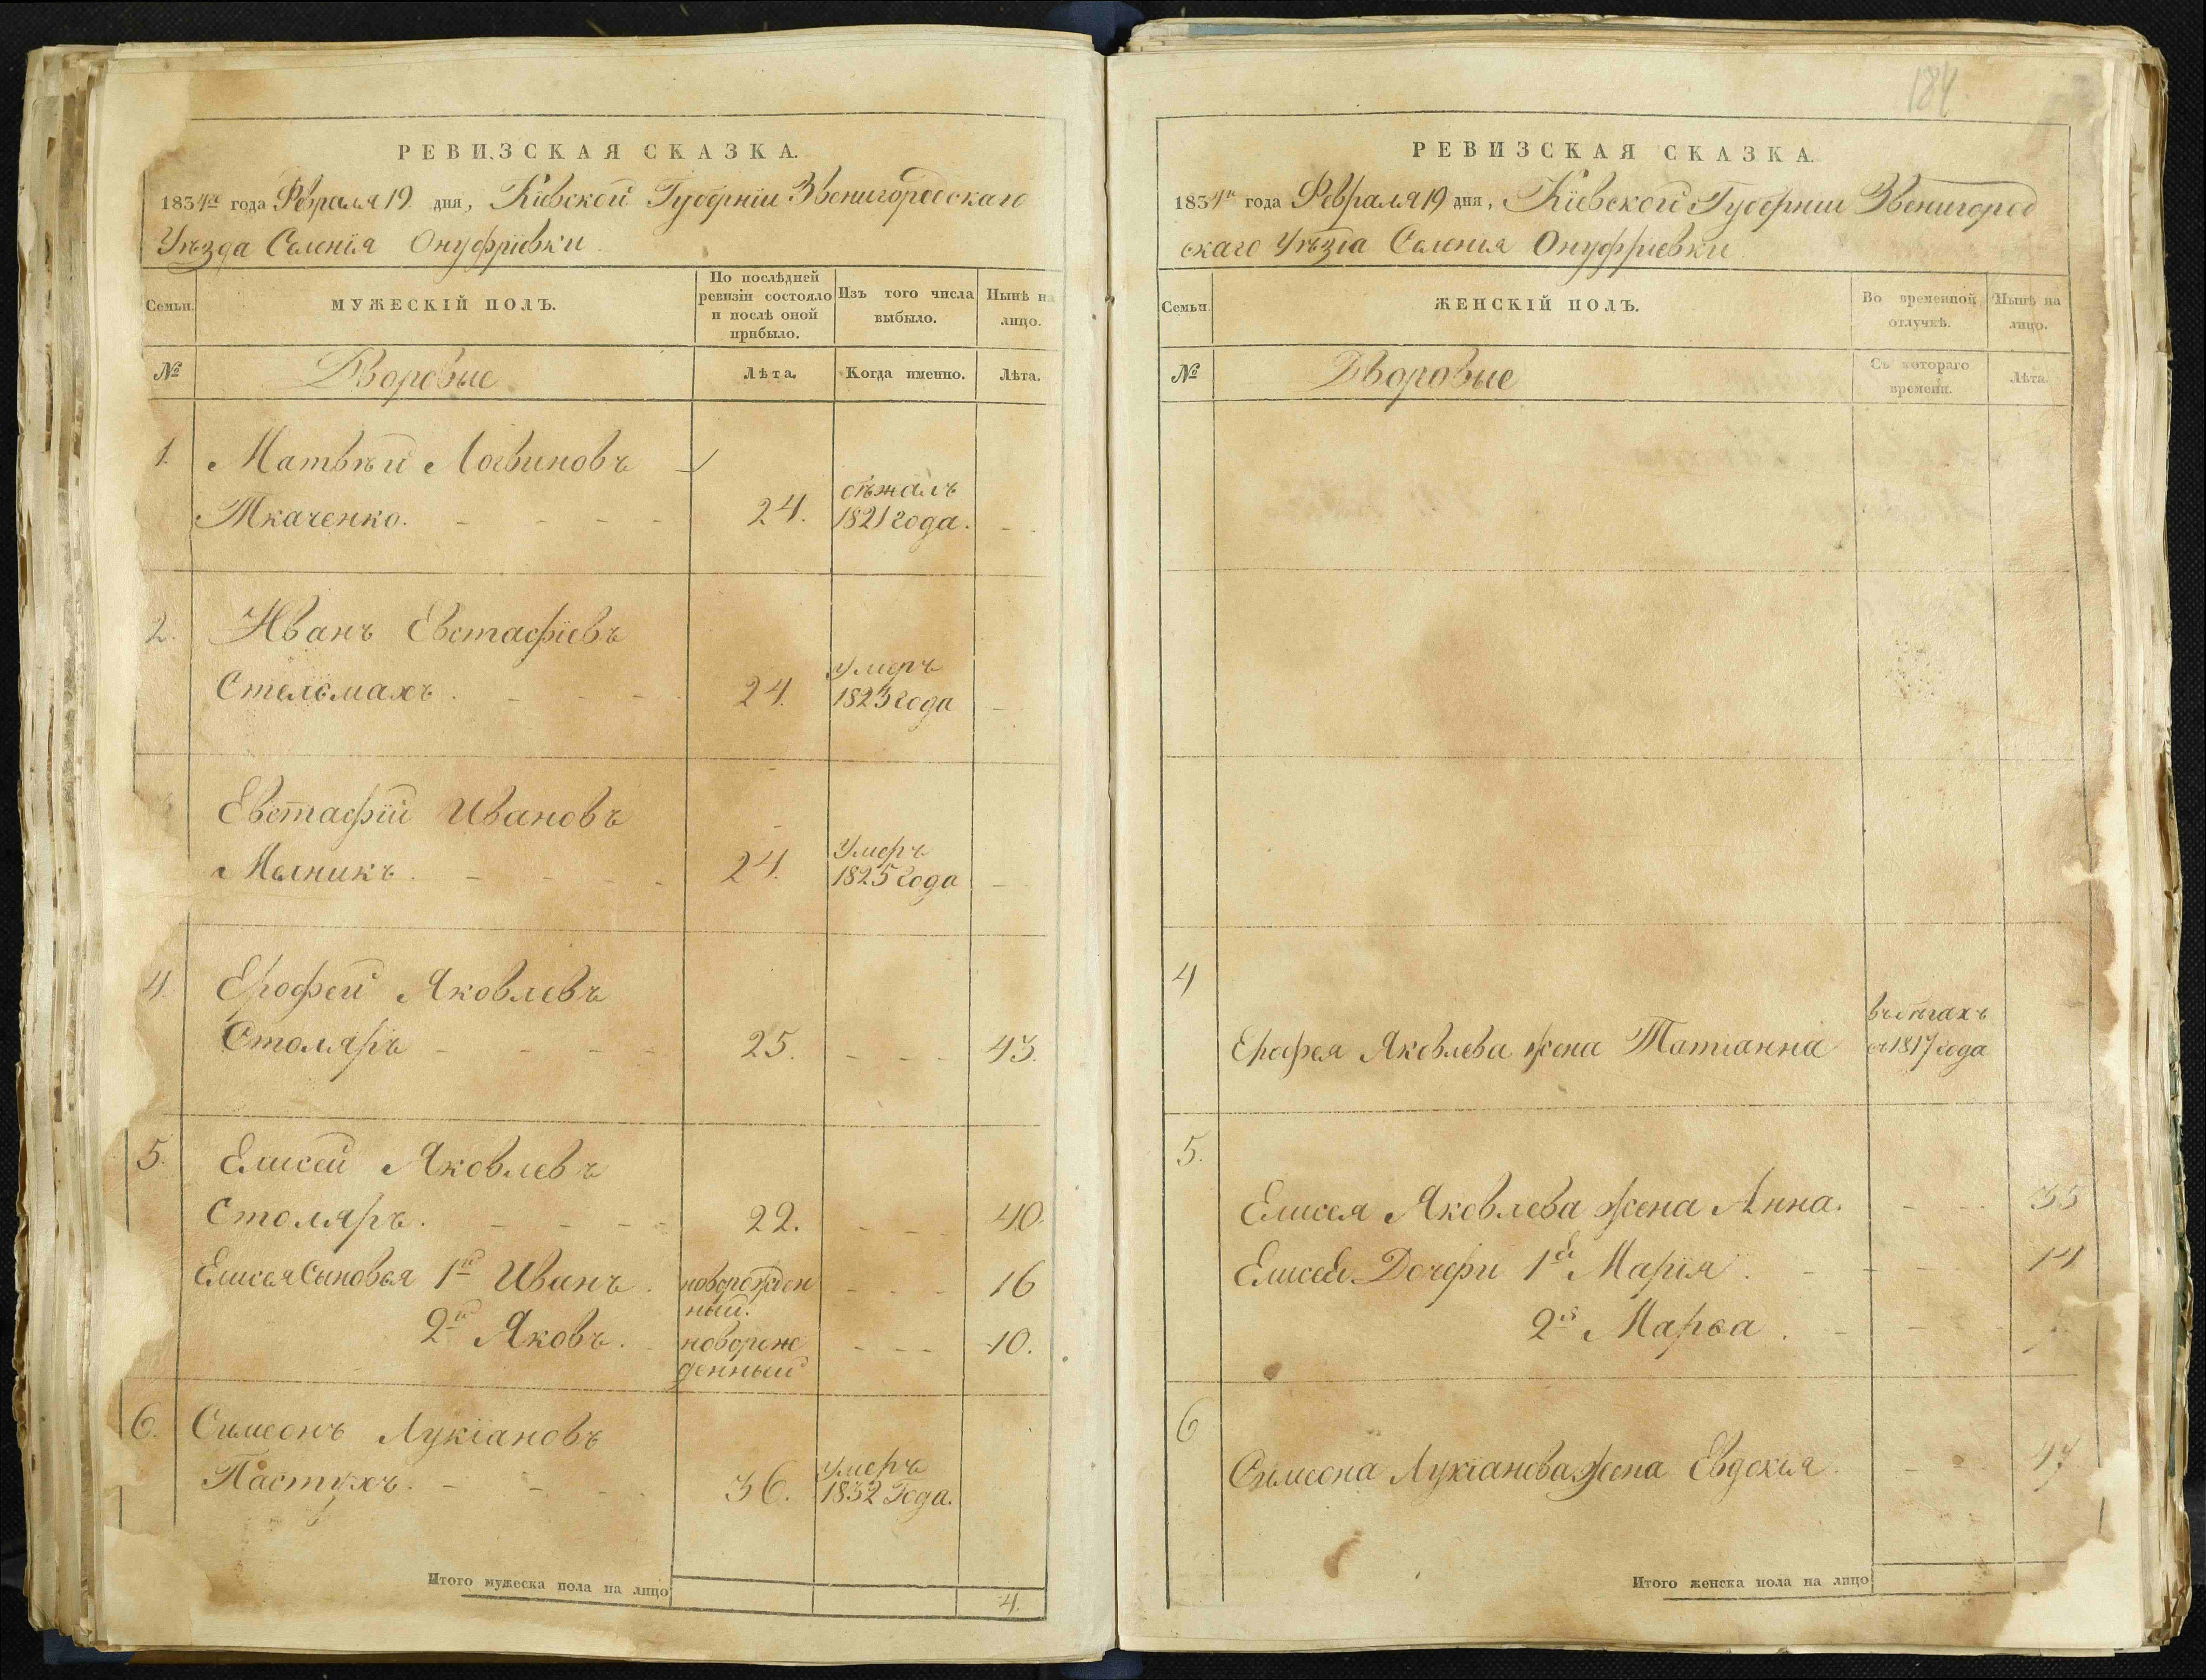 РЕВИЗСКАЯ СКАЗКА.
1834го года Февраля 19 дня, Кіевской Губерніи Звенигородскаго
Уѣзда Селенія Онуфріевки
Семьи.
МУЖЕСКІЙ ПОЛЪ.
По послѣдней
ревизіи состояло
и послѣ оной
прибыло.
Изъ того числа
выбыло.
Нынѣ на
лицо.
№
Дворовые
Лѣта.
Когда именно.
Лѣта.
1. Матвѣй Логвиновъ
Ткаченко. 24. бѣжалъ 1821 года.
2. Иванъ Евстафіевъ
Стельмахъ. 24. умеръ 1823 года
Евстафій Ивановъ
Мелникъ. 24. Умеръ 1825 года
4. Ерофей Яковлевъ
Столяръ 25. 43.
5. Елисей Яковлевъ
Столяръ. 22. 40.
Елисея Сыновья 1й Иванъ. новорожденный. 16
2й Яковъ. новорожденный 10.
6. Симеонъ Лукіановъ
Пастухъ. 36. умеръ 1832 Года.
Итого мужеска пола на лицо 4.
184
РЕВИЗСКАЯ СКАЗКА.
1834го года Февраля 19 дня, Кіевской Губерніи Звенигород
скаго Уѣзда Селенія Онуфріевки
Семьи.
ЖЕНСКІЙ ПОЛЪ.
Во временной
отлучкѣ.
Нынѣ на
лицо.
№
Дворовые
Съ котораго
времени.
Лѣта.
4
Ерофея Яковлева жена Татіанна въ бѣгахъ съ 1817 года
5.
Елисея Яковлева жена Анна. 35
Елисея Дочери 1я Марія. 14
2я Марья.
6
Симеона Лукіанова жена Евдокія. 47
Итого женска пола на лицо